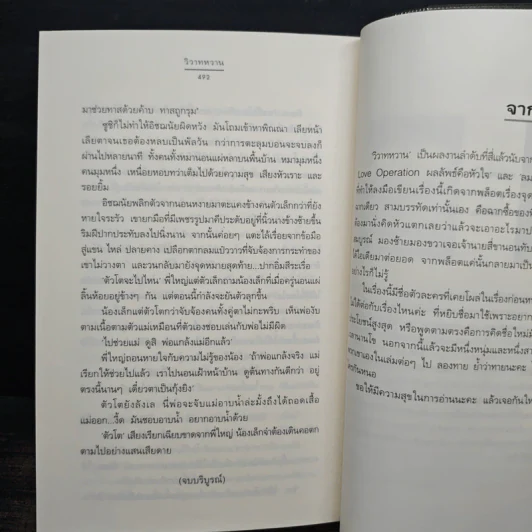 วิวาททหวาน
492
มาช่วยทาสด้วยค้าบ ทาสถูกรุม'
ซูชิก็ไม่ทำให้อิชฌนัยผิดหวัง มันโถมเข้าหาพิณณา เลียหน้า
เลียตาจนเธอต้องหลบเป็นพัลวัน กว่าการตะลุมบอนจะจบลงก็
ผ่านไปหลายนาที ทั้งคนทั้งหมานอนแผ่หลาบนพื้นบ้าน หมามุมหนึ่ง
คนมุมหนึ่ง เหนื่อยหอบทว่าเต็มไปด้วยความสุข เสียงหัวเราะ และ
รอยยิ้ม
อิชฌนัยพลิกตัวจากนอนหงายมาตะแคงข้างคนตัวเล็กกว่าที่ยัง
หายใจระรัว เขายกมือที่มีเพชรรูปมาคีประดับอยู่ที่นิ้วนางข้างซ้ายขึ้น
ริมฝีปากประทับลงไปนิ่งนาน จากนั้นค่อยๆ แตะไล้เรื่อยจากข้อมือ
สู่แขน ไหล่ ปลายคาง เปลือกตากลมแป๋วแววที่จับจ้องการกระทำของ
เขาไม่วางตา และวนกลับมายังจุดหมายสุดท้าย...ปากอิ่มสีระเรื่อ
'ตัวโตจะไปไหน' พี่ใหญ่แต่ตัวเล็กถามน้องเล็กที่เมื่อครู่นอนแผ่
ลิ้นห้อยอยู่ข้างๆ กัน แต่ตอนนี้กำลังจะยันตัวลุกขึ้น
น้องเล็กแต่ตัวโตกว่าจับจ้องคนทั้งคู่ตาไม่กะพริบ เห็นพ่องับ
ตามเนื้อตามตัวแม่เหมือนที่ตัวเองชอบเล่นกับพ่อไม่มีผิด
'ไปช่วยแม่ ดูสิ พ่อแกล้งแม่อีกแล้ว'
พี่ใหญ่ถอนหายใจกับความไม่รู้ของน้อง 'ถ้าพ่อแกล้งจริง แม่
เรียกให้ช่วยไปแล้ว เราไปนอนเฝ้าหน้าบ้าน ดูต้นทางกันดีกว่า อยู่
ตรงนี้นานๆ เดี๋ยวตาเป็นกุ้งยิง'
ตัวโตยังลังเล นี่พ่อจะจับแม่อาบน้ำล่ะมั้งถึงได้ถอดเสื้อ
แม่ออก...งี้ด มันชอบอาบน้ำ อยากอาบน้ำด้วย
'ตัวโต' เสียงเรียกเฉียบขาดจากพี่ใหญ่ น้องเล็กจำต้องเดินคอตก
ตามไปอย่างแสนเสียดาย
(จบบริบูรณ์)
จาก
'วิวาททหวาน' เป็นผลงานลำดับที่สี่แล้วนับจาก
Love Operation ผลลัพธ์คือหัวใจ' และ
ทำให้ลงมือเขียนเรื่องนี้เกิดจากพล็อตเรื่องจุด
แรกเดียว สามบรรทัดเท่านั้นเอง คือฉากซื้อของ
ต้องมานั่งคิดหัวแตกเลยว่าแล้วจะเอาอะไรมา
สมบูรณ์ มองซ้ายมองขวาเจอเจ้านายสี่ขานอน
ได้ไอเดียมาต่อยอด จากพล็อตแค่นั้นกลายมาเป็น
อย่างไรก็ไม่รู้
ในเรื่องนี้มีชื่อตัวละครที่เคยโผล่ในเรื่องก่อน
ไม่ได้ต่อกับเรื่องไหนค่ะ ที่หยิบชื่อมาใช้เพราะอยาก
ประโยชน์สูงสุด หรือพูดตามตรงคือการคิดชื่อใหม่
นอกจากนี้แล้วจะมีหนึ่งหนุ่มและหนึ่งสาว
ในเล่มต่อๆ ไป ลองทาย ย้ำว่าทายนะคะ
กันหนอ
ขอให้มีความสุขในการอ่านนะคะ แล้วเจอกันใหม่